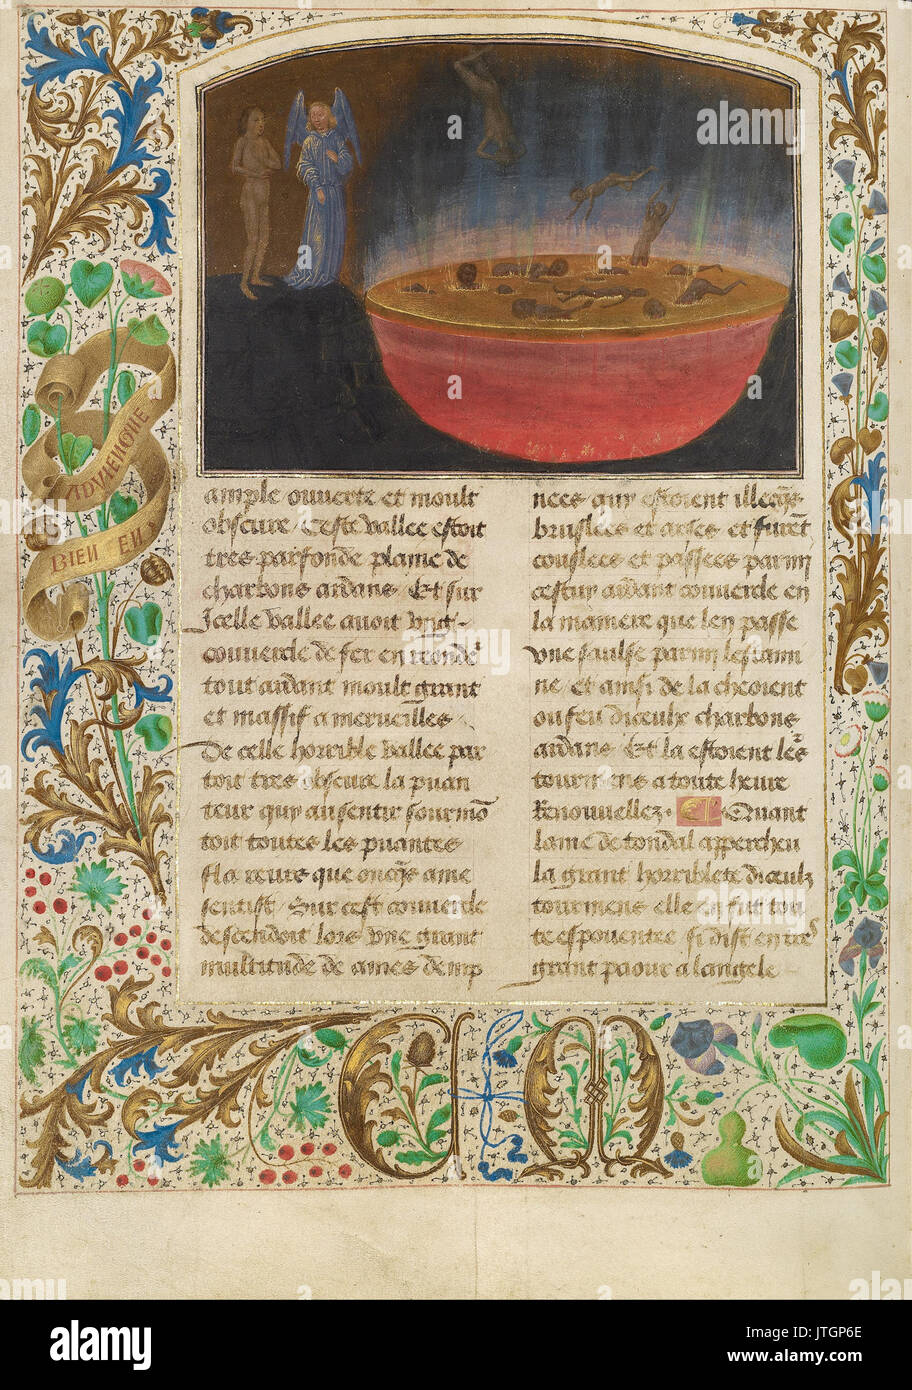 BIEN EN
ADVIENGNE
ample ouverte et moult
obscure / Ceste vallee estoit
tres parfonde plaine de
charbons ardans / Et sur
Icelle vallee avoit vng
couuercle de fer en
tout ardant moult grant
et massif a merueilles
De celle horrible vallee par
toit tres obscure la puan
teur qui au sentir
toit toutes les puantes
que oncques ame
sentist / Sur cest couuercle
descendoit lors vne grant
multitude de ames demp
nees qui estoient illecques
bruslees et arses et furent
coulees et passees parmy
cestui ardant couuercle en
la maniere que len passe
vne saulse parmy lestami
ne / et ainsi de la cheoient
ou feu diceulx charbons
ardans Et la estoient les
tourmens a toute heure
Renouuellez · Quant
lame de tondal appercheu
la grant horriblete diceulx
tourmens elle en fut tou
te espouentee si dist en tres
grant paour a langele
C M
a
alamy
alamy
Image ID: JTGP6E
www.alamy.com